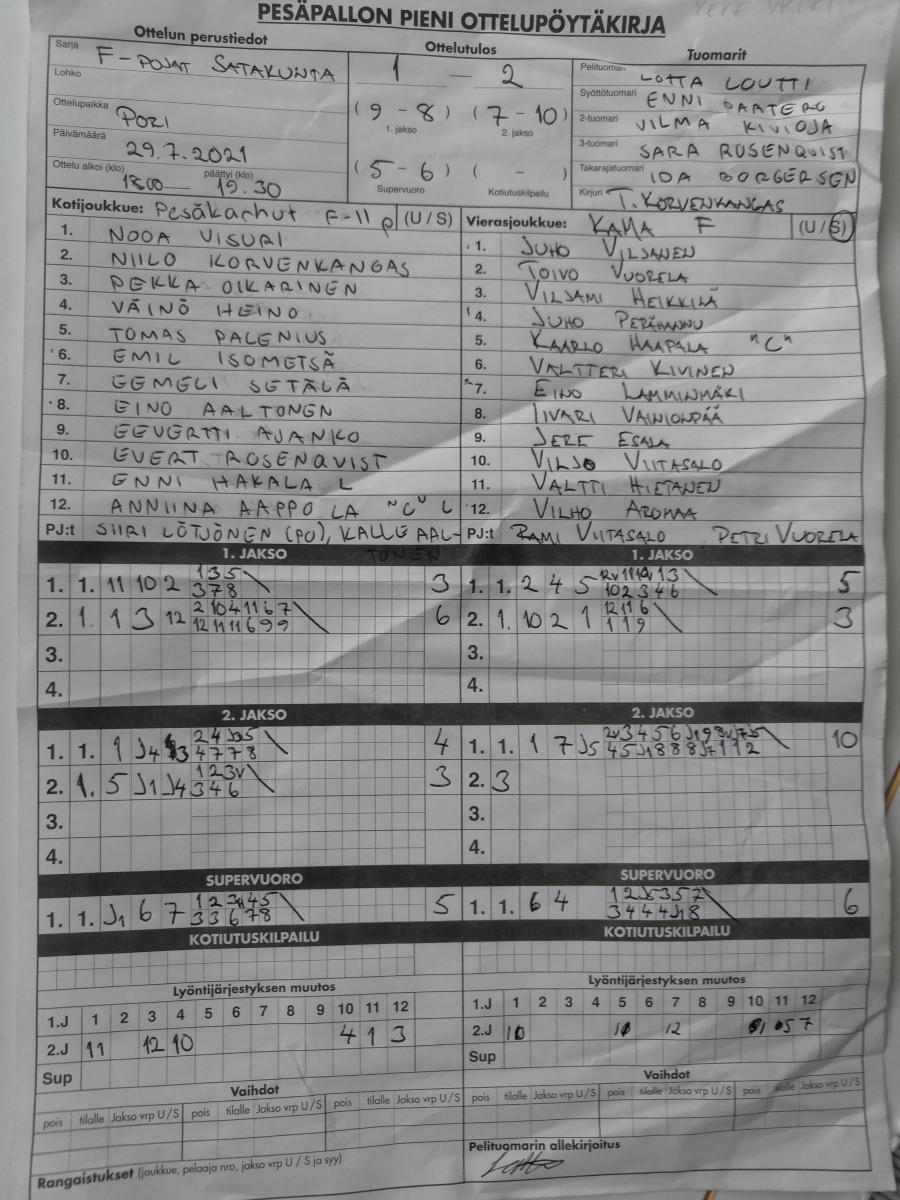 PESÄPALLON PIENI OTTELUPÖYTÄKIRJA
Ottelun perustiedot
Sarja F-POJAT SATAKUNTA
Lohko
Ottelupaikka PORI
Päivämäärä 29.7.2021
Ottelu alkoi (klo) 18.00 päättyi (klo) 19.30
Ottelutulos
1 - 2
(9 - 8) (7 - 10)
1. jakso 2. jakso
(5 - 6) ( - )
Supervuoro Kotiutuskilpailu
Tuomarit
Pelituomari LOTTA LOUTTI
Syöttötuomari ENNI PAATERO
2-tuomari VILMA KIVIOJA
3-tuomari SARA ROSENQVIST
Takarajatuomari IDA BORGERSEN
Kirjuri T. KORVENKANGAS
Kotijoukkue: Pesäkarhut F-11 p (U / S)
1. NOOA VISURI
2. NIILO KORVENKANGAS
3. PEKKA OIKARINEN
4. VÄINÖ HEINO
5. TOMAS PALENIUS
6. EMIL ISOMETSÄ
7. EEMELI SETÄLÄ
8. EINO AALTONEN
9. EEVERTTI AJANKO
10. EVERT ROSENQVIST
11. ENNI HAKALA L
12. ANNIINA AAPPOLA "C" L
PJ:t SIIRI LÖTJÖNEN (PO), KALLE AAL-
TONEN
Vierasjoukkue: KAMA F (U / S)
1. JUHO VILJANEN
2. TOIVO VUORELA
3. VILJAMI HEIKKILÄ
4. JUHO PERÄHANNU
5. KAARLO HAAPALA "C"
6. VALTTERI KIVINEN
7. EINO LAMMINMÄKI
8. IIVARI VAINIONPÄÄ
9. JERE ESALA
10. VILJO VIITASALO
11. VALTTI HIETANEN
12. VILHO AROMAA
PJ:t RAMI VIITASALO PETRI VUORELA
1. JAKSO
1. 1. 11 10 2 1 3 5 3
3 7 8
2. 1. 1 3 12 2 10 4 11 6 7 6
12 11 11 6 9 9
3.
4.
1. JAKSO
1. 1. 2 4 5 5
10 2 3 4 6
2. 1. 10 2 1 12 11 6 3
1 1 9
3.
4.
2. JAKSO
1. 1. 1 J4 4
4 7 7 8
2. 1. 5 J1 J4 1 2 3v 3
3 4 6
3.
4.
2. JAKSO
1. 1. 1 7 J5 2v 3 4 5 6 J1 9 8v J7 5 10
4 5 J1 8 8 8 J7 1 1 2
2. 3
3.
4.
SUPERVUORO
1. 1. J1 6 7 5
3 3 6 7 8
SUPERVUORO
1. 1. 6 4 1 2 J5 3 5 7 6
3 4 4 4 J1 8
KOTIUTUSKILPAILU
KOTIUTUSKILPAILU
Lyöntijärjestyksen muutos
1.J 1 2 3 4 5 6 7 8 9 10 11 12
2.J 11 12 10 4 1 3
Sup
Lyöntijärjestyksen muutos
1.J 1 2 3 4 5 6 7 8 9 10 11 12
2.J 10 12 7
Sup
Vaihdot
pois tilalle Jakso vrp U / S pois tilalle Jakso vrp U / S pois tilalle Jakso vrp U / S
Vaihdot
pois tilalle Jakso vrp U / S pois tilalle Jakso vrp U / S pois tilalle Jakso vrp U / S
Rangaistukset (joukkue, pelaaja nro, jakso vrp U / S ja syy)
Pelituomarin allekirjoitus